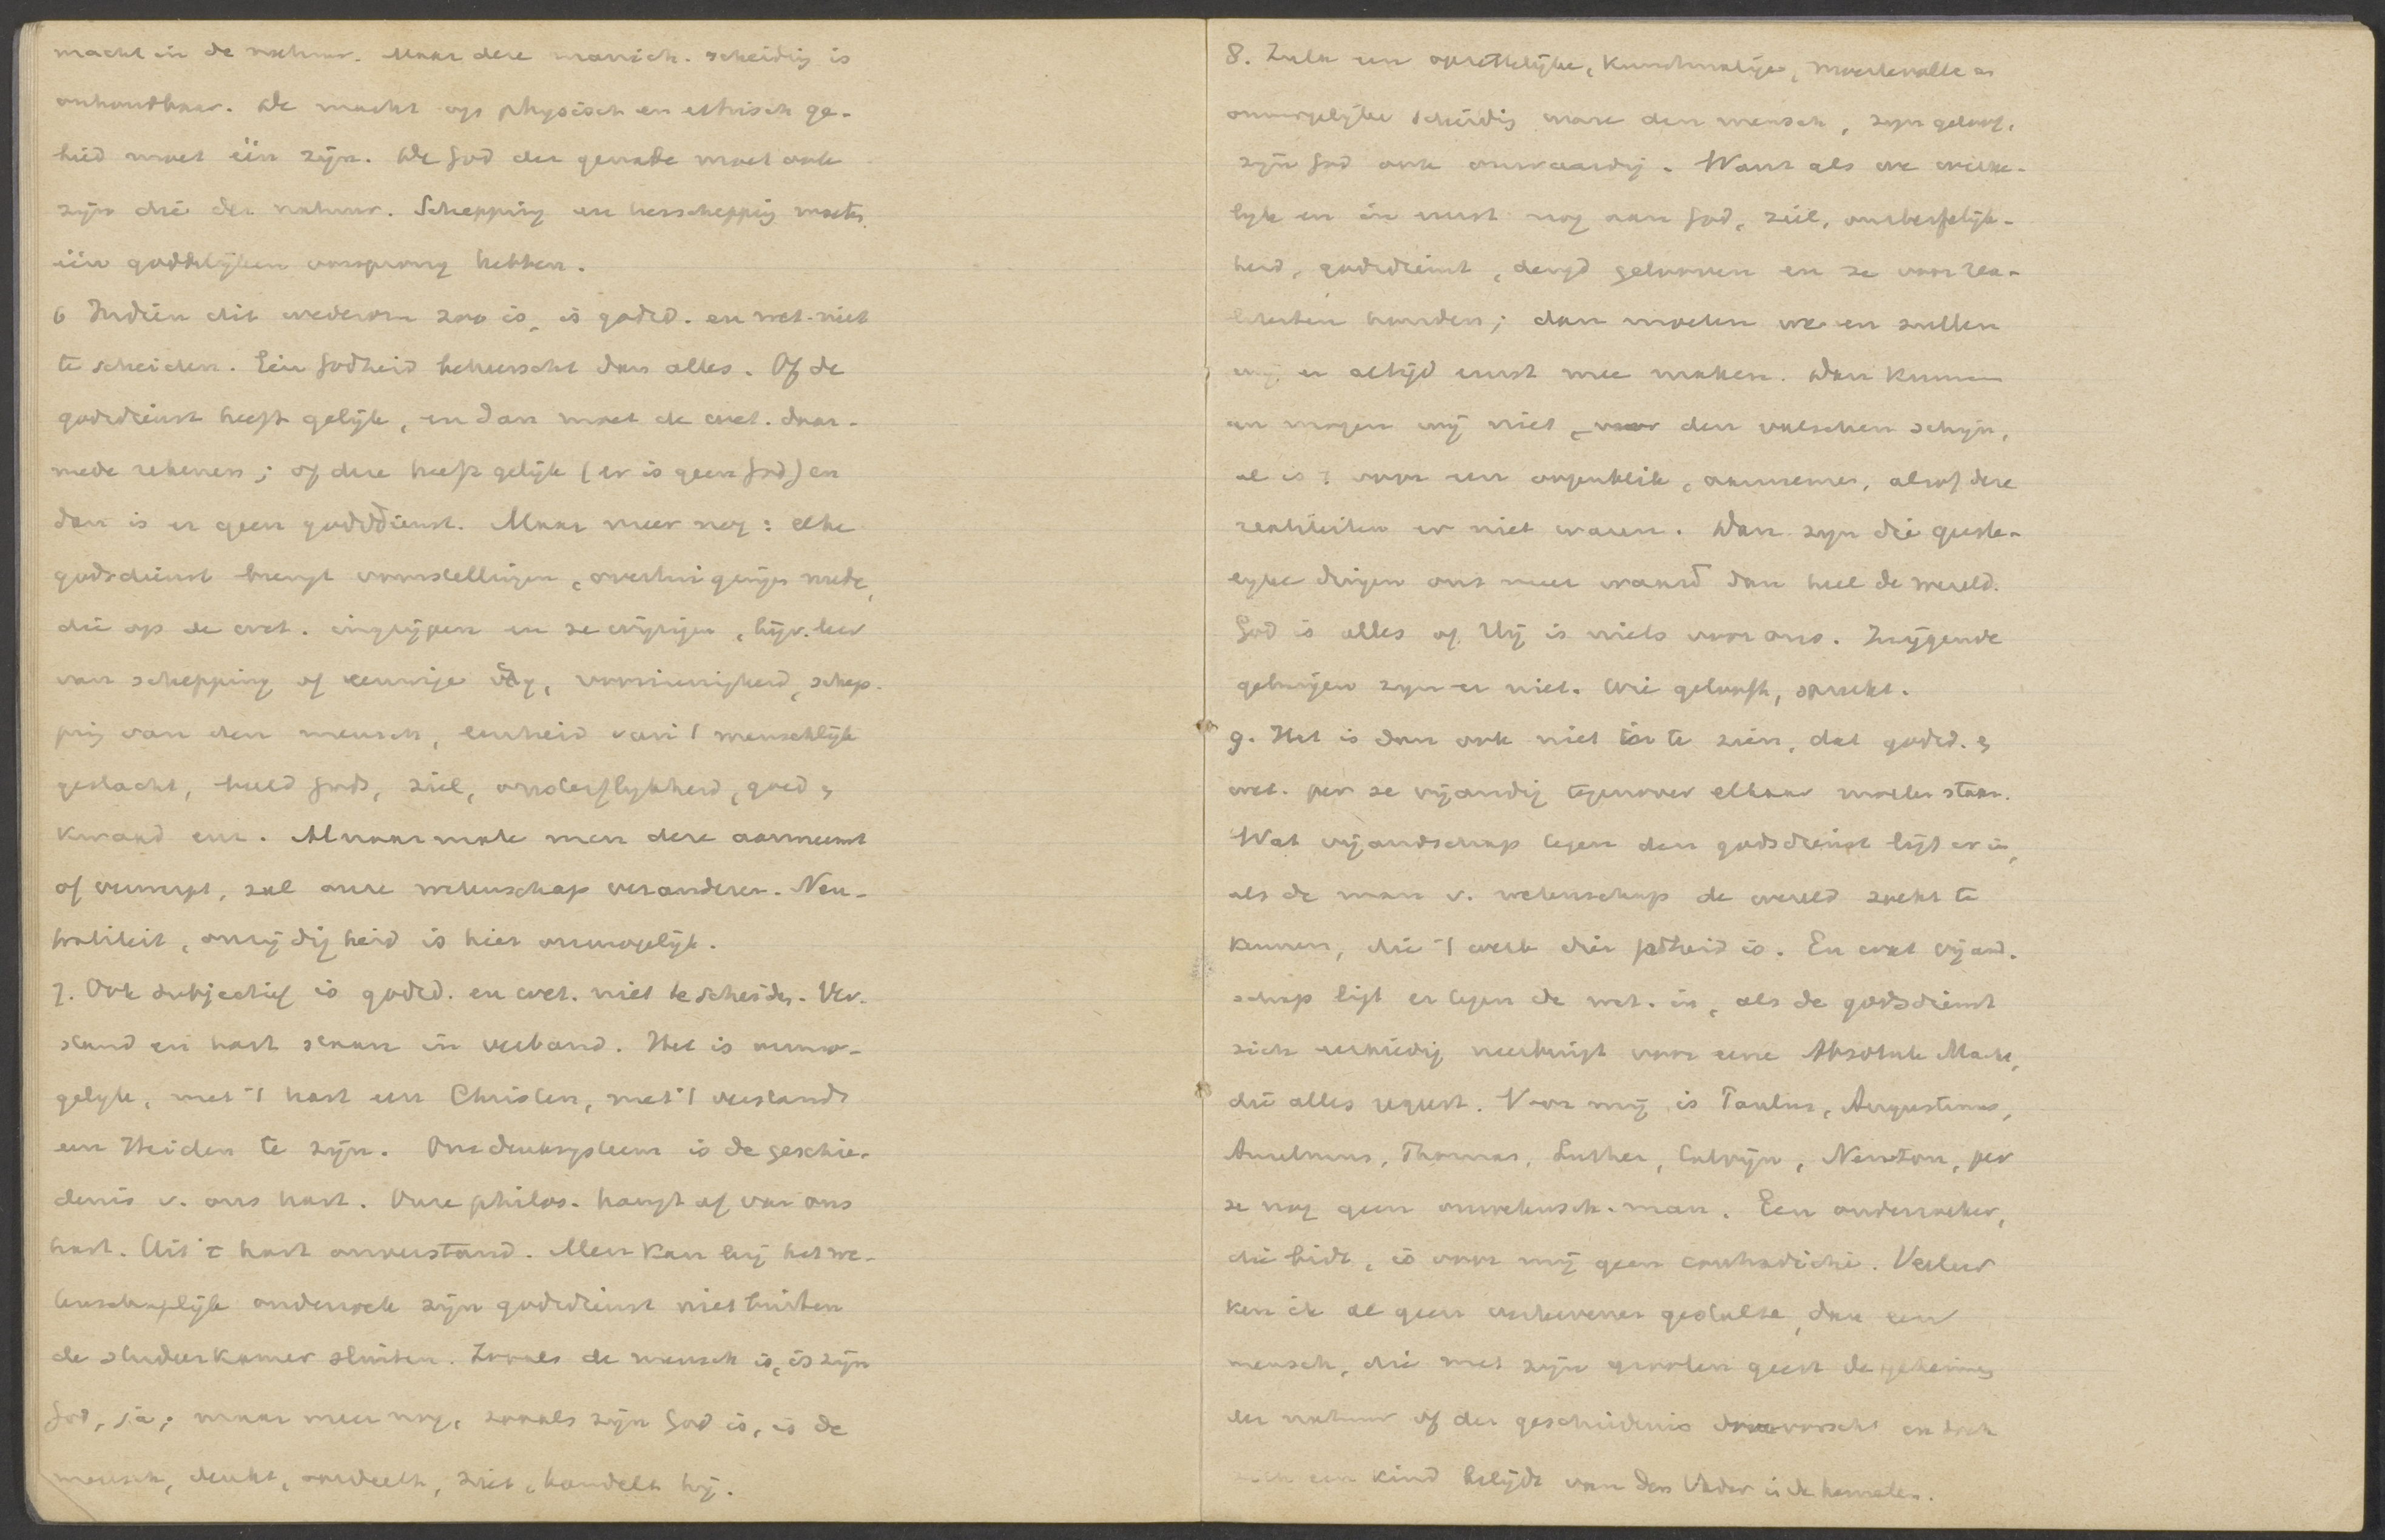 macht in de natuur. Maar deze manich. scheiding is
onhoudbaar. De macht op physisch en ethisch ge-
bied moet één zijn. De God der genade moet ook
zijn die der natuur. Schepping en herschepping moeten
één goddelijken oorsprong hebben.
6 Indien dit wederom zoo is, is godsd. en wet. niet
te scheiden. Eén Godheid beheerscht dan alles. Of de
godsdienst heeft gelijk, en dan moet de wet. daar-
mede rekenen; of deze heeft gelijk (er is geen God) en
dan is er geen godsdienst. Maar meer nog: elke
godsdienst brengt voorstellingen, overtuigingen mede,
die op de wet. ingrijpen en ze wijzigen, bijv. leer
van schepping of eeuwige, voorzienigheid, schep-
ping van den mensch, eenheid van 't menschlijk
geslacht, beeld Gods, ziel, onsterflijkheid, goed en
kwaad enz. Al naarmate men deze aanneemt
of verwerpt, zal onze wetenschap veranderen. Neu-
traliteit, onzijdigheid is hier onmogelijk.
7. Ook subjectief is godsd. en wet. niet te scheiden. Ver-
stand en hart staan in verband. Het is onmo-
gelijk, met 't hart een Christen, met 't verstand
een Heiden te zijn. Ons denksysteem is de geschie-
denis v. ons hart. Onze philos. hangt af van ons
hart. Uit 't hart onverstand. Men kan bij het we-
tenschaplijk onderzoek zijn godsdienst niet buiten
de studeerkamer sluiten. Zooals de mensch is, is zijn
God, ja; maar meer nog, zooals zijn God is, is de
mensch, denkt, oordeelt, ziet, handelt hij.
8. Zulk een opzettelijke, kunstmatige, moeitevolle en
onmogelijke scheiding ware den mensch, zijn geloof,
zijn God ook onwaardig. Want als we werke-
lijk en in ernst nog aan God, ziel, onsterfelijk-
heid, godsdienst, deugd gelooven en ze voor rea-
liteiten houden; dan moeten we en zullen
wij er altijd ernst mee maken. Dan kunnen
en mogen wij niet, den valschen schijn,
al is 't voor een oogenblik, aannemen, alsof deze
realiteiten er niet waren. Dan zijn die geeste-
lijke dingen ons meer waard dan heel de wereld.
God is alles of Hij is niets voor ons. Zwijgende
getuigen zijn er niet. Wie gelooft, spreekt.
9. Het is dan ook niet in te zien, dat godsd. en
wet. per se vijandig tegenover elkaar moeten staan.
Wat vijandschap tegen den godsdienst ligt er in,
als de man v. wetenschap de wereld zoekt te
kennen, die 't werk dier Godheid is. En wat vijand-
schap ligt er tegen de wet. in, als de godsdienst
zich eerbiedig neerbuigt voor eene Absolute Macht,
die alles regeert. Voor mij is Paulus, Augustinus,
Anselmus, Thomas, Luther, Calvijn, Newton, per
se nog geen onwetensch. man. Een onderzoeker,
die bidt, is voor mij geen contradictie. Veeleer
ken ik al geen verhevener gestalte, dan een
mensch, die met zijn grooten geest de geheimen
der natuur of der geschiedenis doorvorscht en toch
zich een kind belijdt van den Vader in de hemelen.